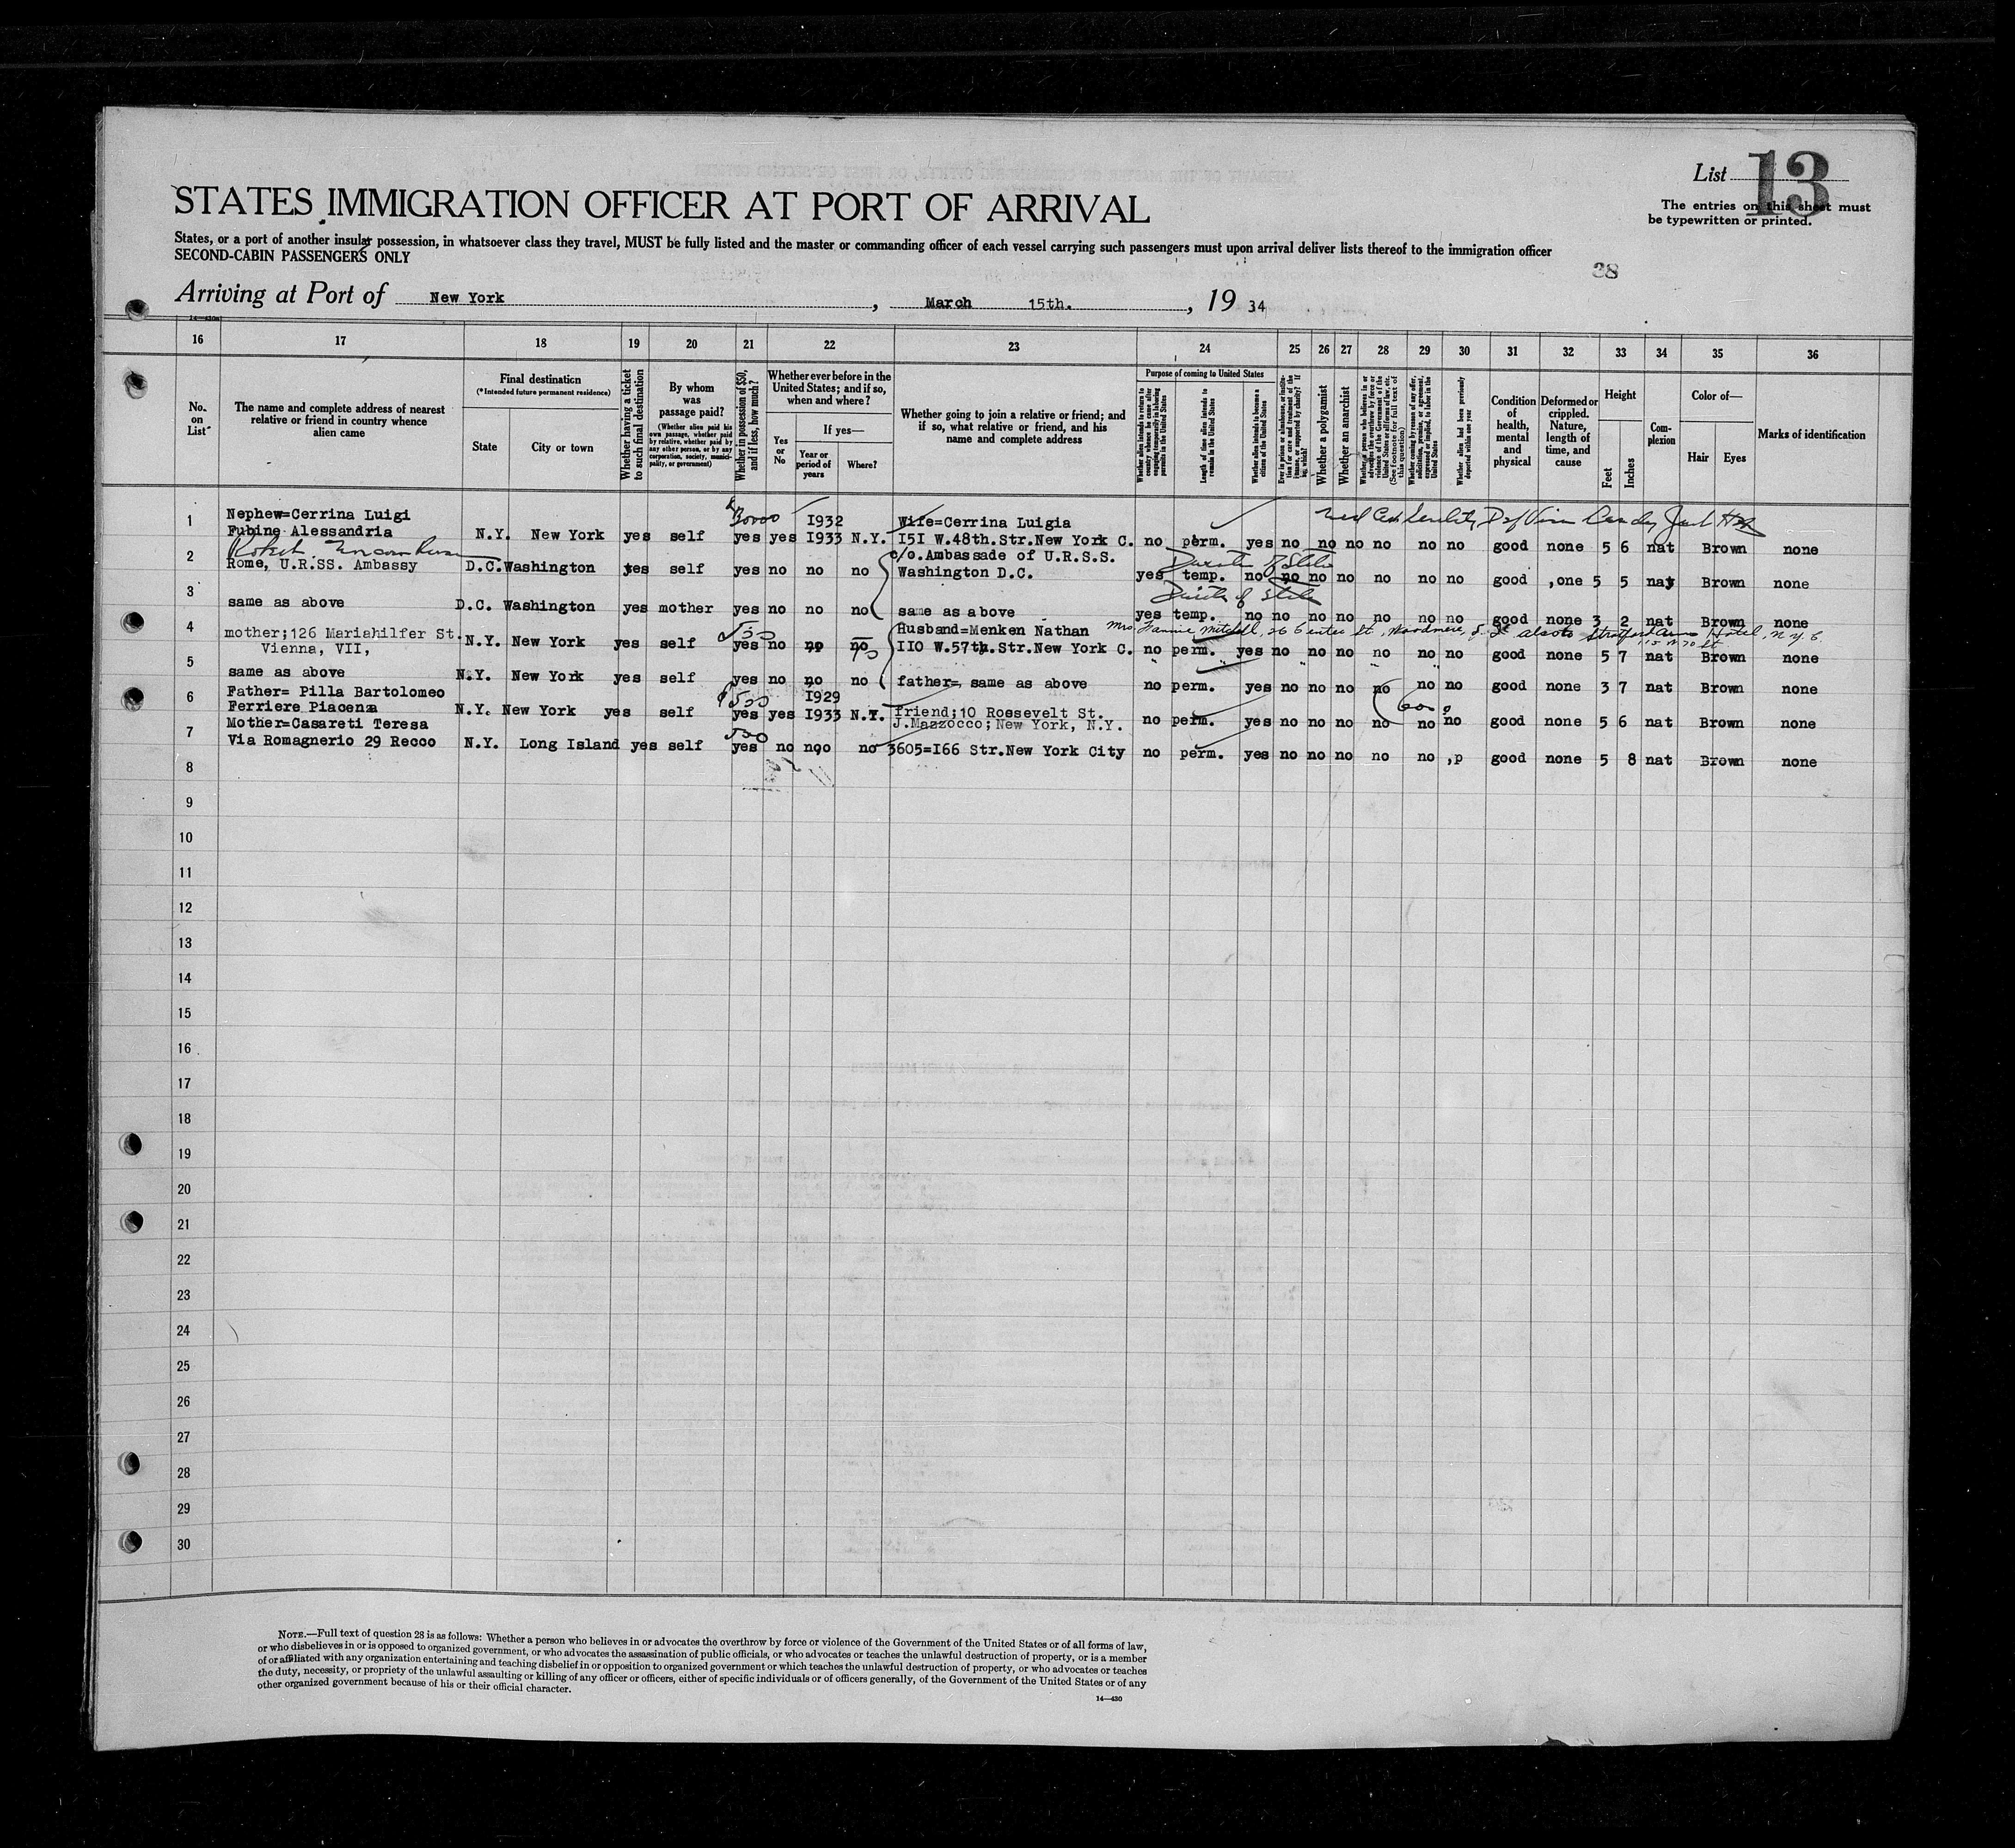 List 13
The entries on this sheet must
be typewritten or printed.
STATES IMMIGRATION OFFICER AT PORT OF ARRIVAL
States, or a port of another insular possession, in whatsoever class they travel, MUST be fully listed and the master or commanding officer of each vessel carrying such passengers must upon arrival deliver lists thereof to the immigration officer
SECOND-CABIN PASSENGERS ONLY
38
Arriving at Port of New York, March 15th., 19 34
16 17 18 19 20 21 22 23 24 25 26 27 28 29 30 31 32 33 34 35 36
No. on List
The name and complete address of nearest relative or friend in country whence alien came
Final destination
(*Intended future permanent residence)
State
City or town
Whether having a ticket to such final destination
By whom was passage paid?
(Whether alien paid his own passage, whether paid by relative, whether paid by any other person, or by any corporation, society, municipality, or government)
Whether in possession of $50, and if less, how much?
Whether ever before in the United States; and if so, when and where?
Yes or No
If yes—
Year or period of years
Where?
Whether going to join a relative or friend; and if so, what relative or friend, and his name and complete address
Purpose of coming to United States
Whether alien intends to return to country whence he came after engaging temporarily in laboring pursuits in the United States
Length of time alien intends to remain in the United States
Whether alien intends to become a citizen of the United States
Ever in prison or almshouse, or institution for care and treatment of the insane, or supported by charity? If so, which?
Whether a polygamist
Whether an anarchist
(See footnote for full text of this question)
Whether coming by reason of any offer, solicitation, promise, or agreement, expressed or implied, to labor in the United States
Whether alien had been previously deported within one year
Condition of health, mental and physical
Deformed or crippled. Nature, length of time, and cause
Height
Feet
Inches
Complexion
Color of—
Hair
Eyes
Marks of identification
1 Nephew=Cerrina Luigi 3000 I932 Wife=Cerrina Luigia
Fubine Alessandria N.Y. New York yes self yes yes I933 N.Y. I5I W.48th.Str.New York C. no perm. yes no no no no no no good none 5 6 nat Brown none
2 c/o.Ambassade of U.R.S.S.
Rome, U.R.SS. Ambassy D.C. Washington yes self yes no no no Washington D.C. yes temp. no no no no no no no good ,one 5 5 nat Brown none
3 same as above D.C. Washington yes mother yes no no no same as above yes temp. no no no no no no no good none 3 2 nat Brown none
4 mother;126 Mariahilfer St. 500 Husband=Menken Nathan Mrs Fannie Mitchell, Woodmere, Hotel, N.Y.C.
Vienna, VII, N.Y. New York yes self yes no no no IIO W.57th.Str.New York C. no perm. yes no no no no no no good none 5 7 nat Brown none
5 same as above N.Y. New York yes self yes no no no father= same as above no perm. yes no no no no no no good none 3 7 nat Brown none
6 Father= Pilla Bartolomeo $500 I929
Ferriere Piacenza N.Y. New York yes self yes yes I933 N.Y. friend;10 Roosevelt St. no perm. yes no no no no no no good none 5 6 nat Brown none
J.Mazzocco;New York, N.Y.
7 Mother=Casareti Teresa 500
Via Romagnerio 29 Recco N.Y. Long Island yes self yes no noo no 3605=I66 Str.New York City no perm. yes no no no no no ,p good none 5 8 nat Brown none
8
9
10
11
12
13
14
15
16
17
18
19
20
21
22
23
24
25
26
27
28
29
30
NOTE.—Full text of question 28 is as follows: Whether a person who believes in or advocates the overthrow by force or violence of the Government of the United States or of all forms of law,
or who disbelieves in or is opposed to organized government, or who advocates the assassination of public officials, or who advocates or teaches the unlawful destruction of property, or is a member
of or affiliated with any organization entertaining and teaching disbelief in or opposition to organized government or which teaches the unlawful destruction of property, or who advocates or teaches
the duty, necessity, or propriety of the unlawful assaulting or killing of any officer or officers, either of specific individuals or of officers generally, of the Government of the United States or of any
other organized government because of his or their official character.
14—430